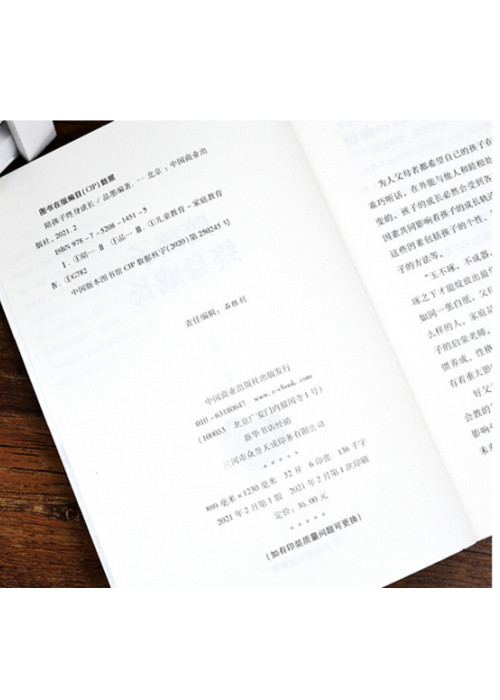 图书在版编目(CIP)数据
陪孩子终身成长 / 品墨编著. -- 北京 : 中国商业出
版社, 2021.2
ISBN 978-7-5208-1451-5
Ⅰ. ①陪… Ⅱ. ①品… Ⅲ. ①儿童教育-家庭教育
Ⅳ. ①G782
中国版本图书馆 CIP 数据核字(2020)第 250245 号
责任编辑: 石胜利
中国商业出版社出版发行
010-63180647 www.c-cbook.com
(100053 北京广安门内报国寺 1 号)
新华书店经销
三河市众誉天成印务有限公司
*****
880 毫米×1230 毫米 32 开 6 印张 136 千字
2021 年 2 月第 1 版 2021 年 2 月第 1 次印刷
定价: 36.00 元
*****
(如有印装质量问题可更换)
为人父母者都希望自己的孩子在
乖巧听话,在外能与他人和睦相处
变的,孩子的成长必然会受到各
因素共同影响着孩子的成长轨
这些因素包括孩子的个性、
子的方法等。
“玉不琢,不成器
琢之下才能绽放出最
如同一张白纸,父母
么样的人。家庭是
子的启蒙老师。
惯养成,性格
有着重大影
好父
会教的
影响
未来